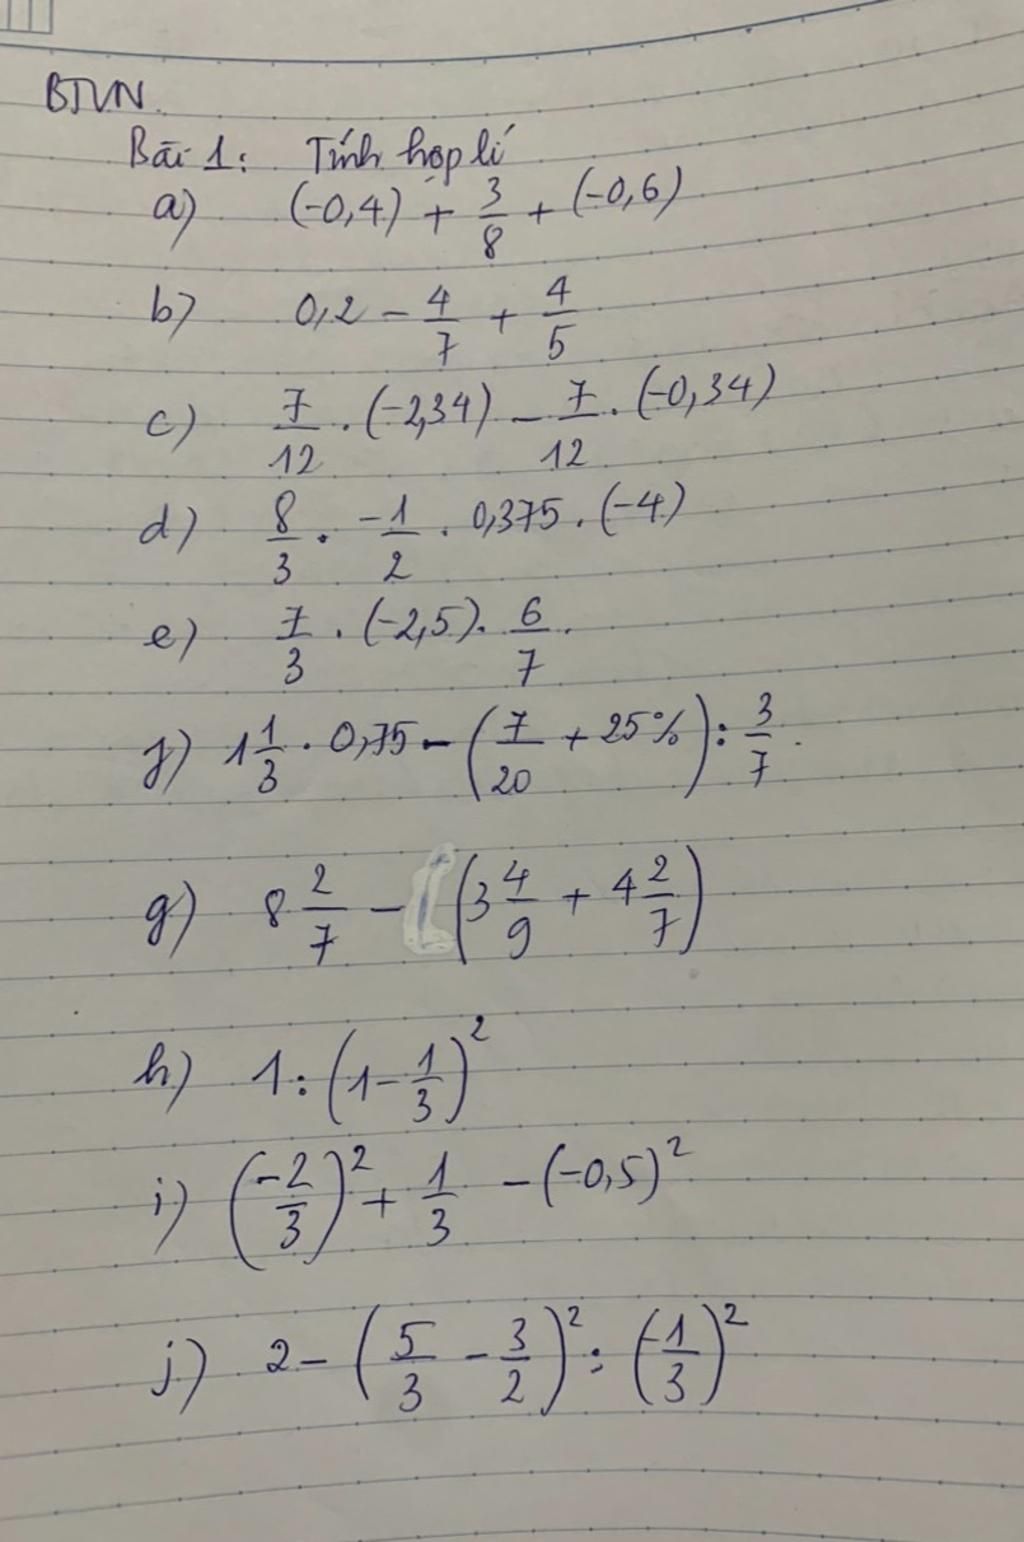 BTVN.
Bài 1: Tính hợp lí
a) (-0,4) + 3/8 + (-0,6)
b) 0,2 - 4/7 + 4/5
c) 7/12 . (-2,34) - 7/12 . (-0,34)
d) 8/3 . -1/2 . 0,375 . (-4)
e) 7/3 . (-2,5) . 6/7 .
f) 1 1/3 . 0,75 - (7/20 + 25%) : 3/7 .
g) 8 2/7 - (3 4/9 + 4 2/7)
h) 1 : (1 - 1/3)²
i) (-2/3)² + 1/3 - (-0,5)²
j) 2 - (5/3 - 3/2)² : (-1/3)²